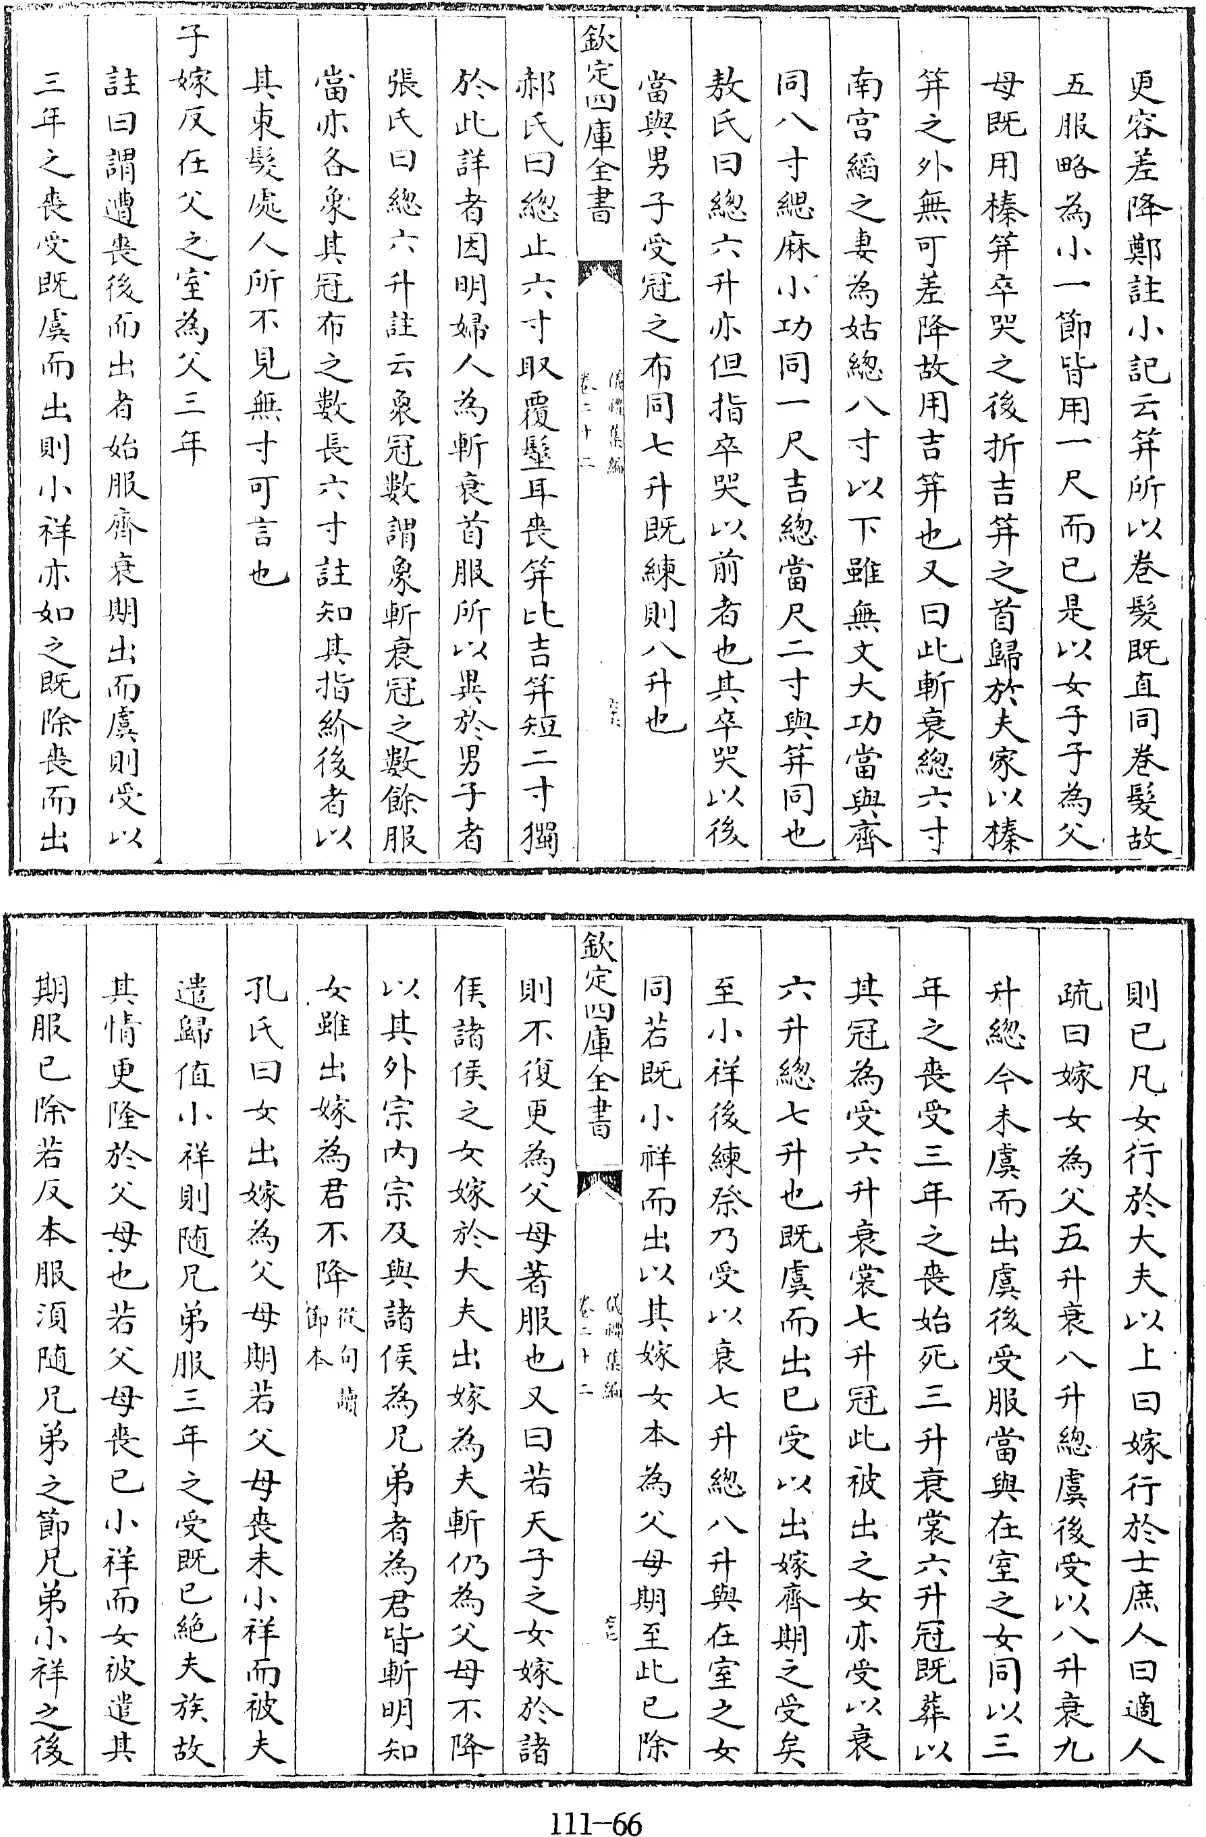 更容差降鄭註小記云笄所以卷髮既直同卷髮故
五服略為小一節皆用一尺而已是以女子子為父
母既用榛笄卒哭之後折吉笄之首歸於夫家以榛
笄之外無可差降故用吉笄也又曰此斬衰總六寸
南宮縚之妻為姑總八寸以下雖無文大功當與齊
同八寸緦麻小功同一尺吉總當尺二寸與笄同也
敖氏曰總六升亦但指卒哭以前者也其卒哭以後
當與男子受冠之布同七升既練則八升也
欽定四庫全書
儀禮集編
卷二十二
郝氏曰總止六寸取覆髽耳喪笄比吉笄短二寸獨
於此詳者因明婦人為斬衰首服所以異於男子者
張氏曰總六升註云象冠數謂象斬衰冠之數餘服
當亦各象其冠布之數長六寸註知其指紒後者以
其束髮處人所不見無寸可言也
子嫁反在父之室為父三年
註曰謂遭喪後而出者始服齊衰期出而虞則受以
三年之喪受既虞而出則小祥亦如之既除喪而出
則已凡女行於大夫以上曰嫁行於士庶人曰適人
疏曰嫁女為父五升衰八升總虞後受以八升衰九
升總今未虞而出虞後受服當與在室之女同以三
年之喪受三年之喪始死三升衰裳六升冠既葬以
其冠為受六升衰裳七升冠此被出之女亦受以衰
六升總七升也既虞而出已受以出嫁齊期之受矣
至小祥後練祭乃受以衰七升總八升與在室之女
同若既小祥而出以其嫁女本為父母期至此已除
欽定四庫全書
儀禮集編
卷二十二
則不復更為父母著服也又曰若天子之女嫁於諸
侯諸侯之女嫁於大夫出嫁為夫斬仍為父母不降
以其外宗內宗及與諸侯為兄弟者為君皆斬明知
女雖出嫁為君不降從句讀
節本
孔氏曰女出嫁為父母期若父母喪未小祥而被夫
遣歸值小祥則随兄弟服三年之受既已絕夫族故
其情更隆於父母也若父母喪已小祥而女被遣其
期服已除若反本服須随兄弟之節兄弟小祥之後
111-66